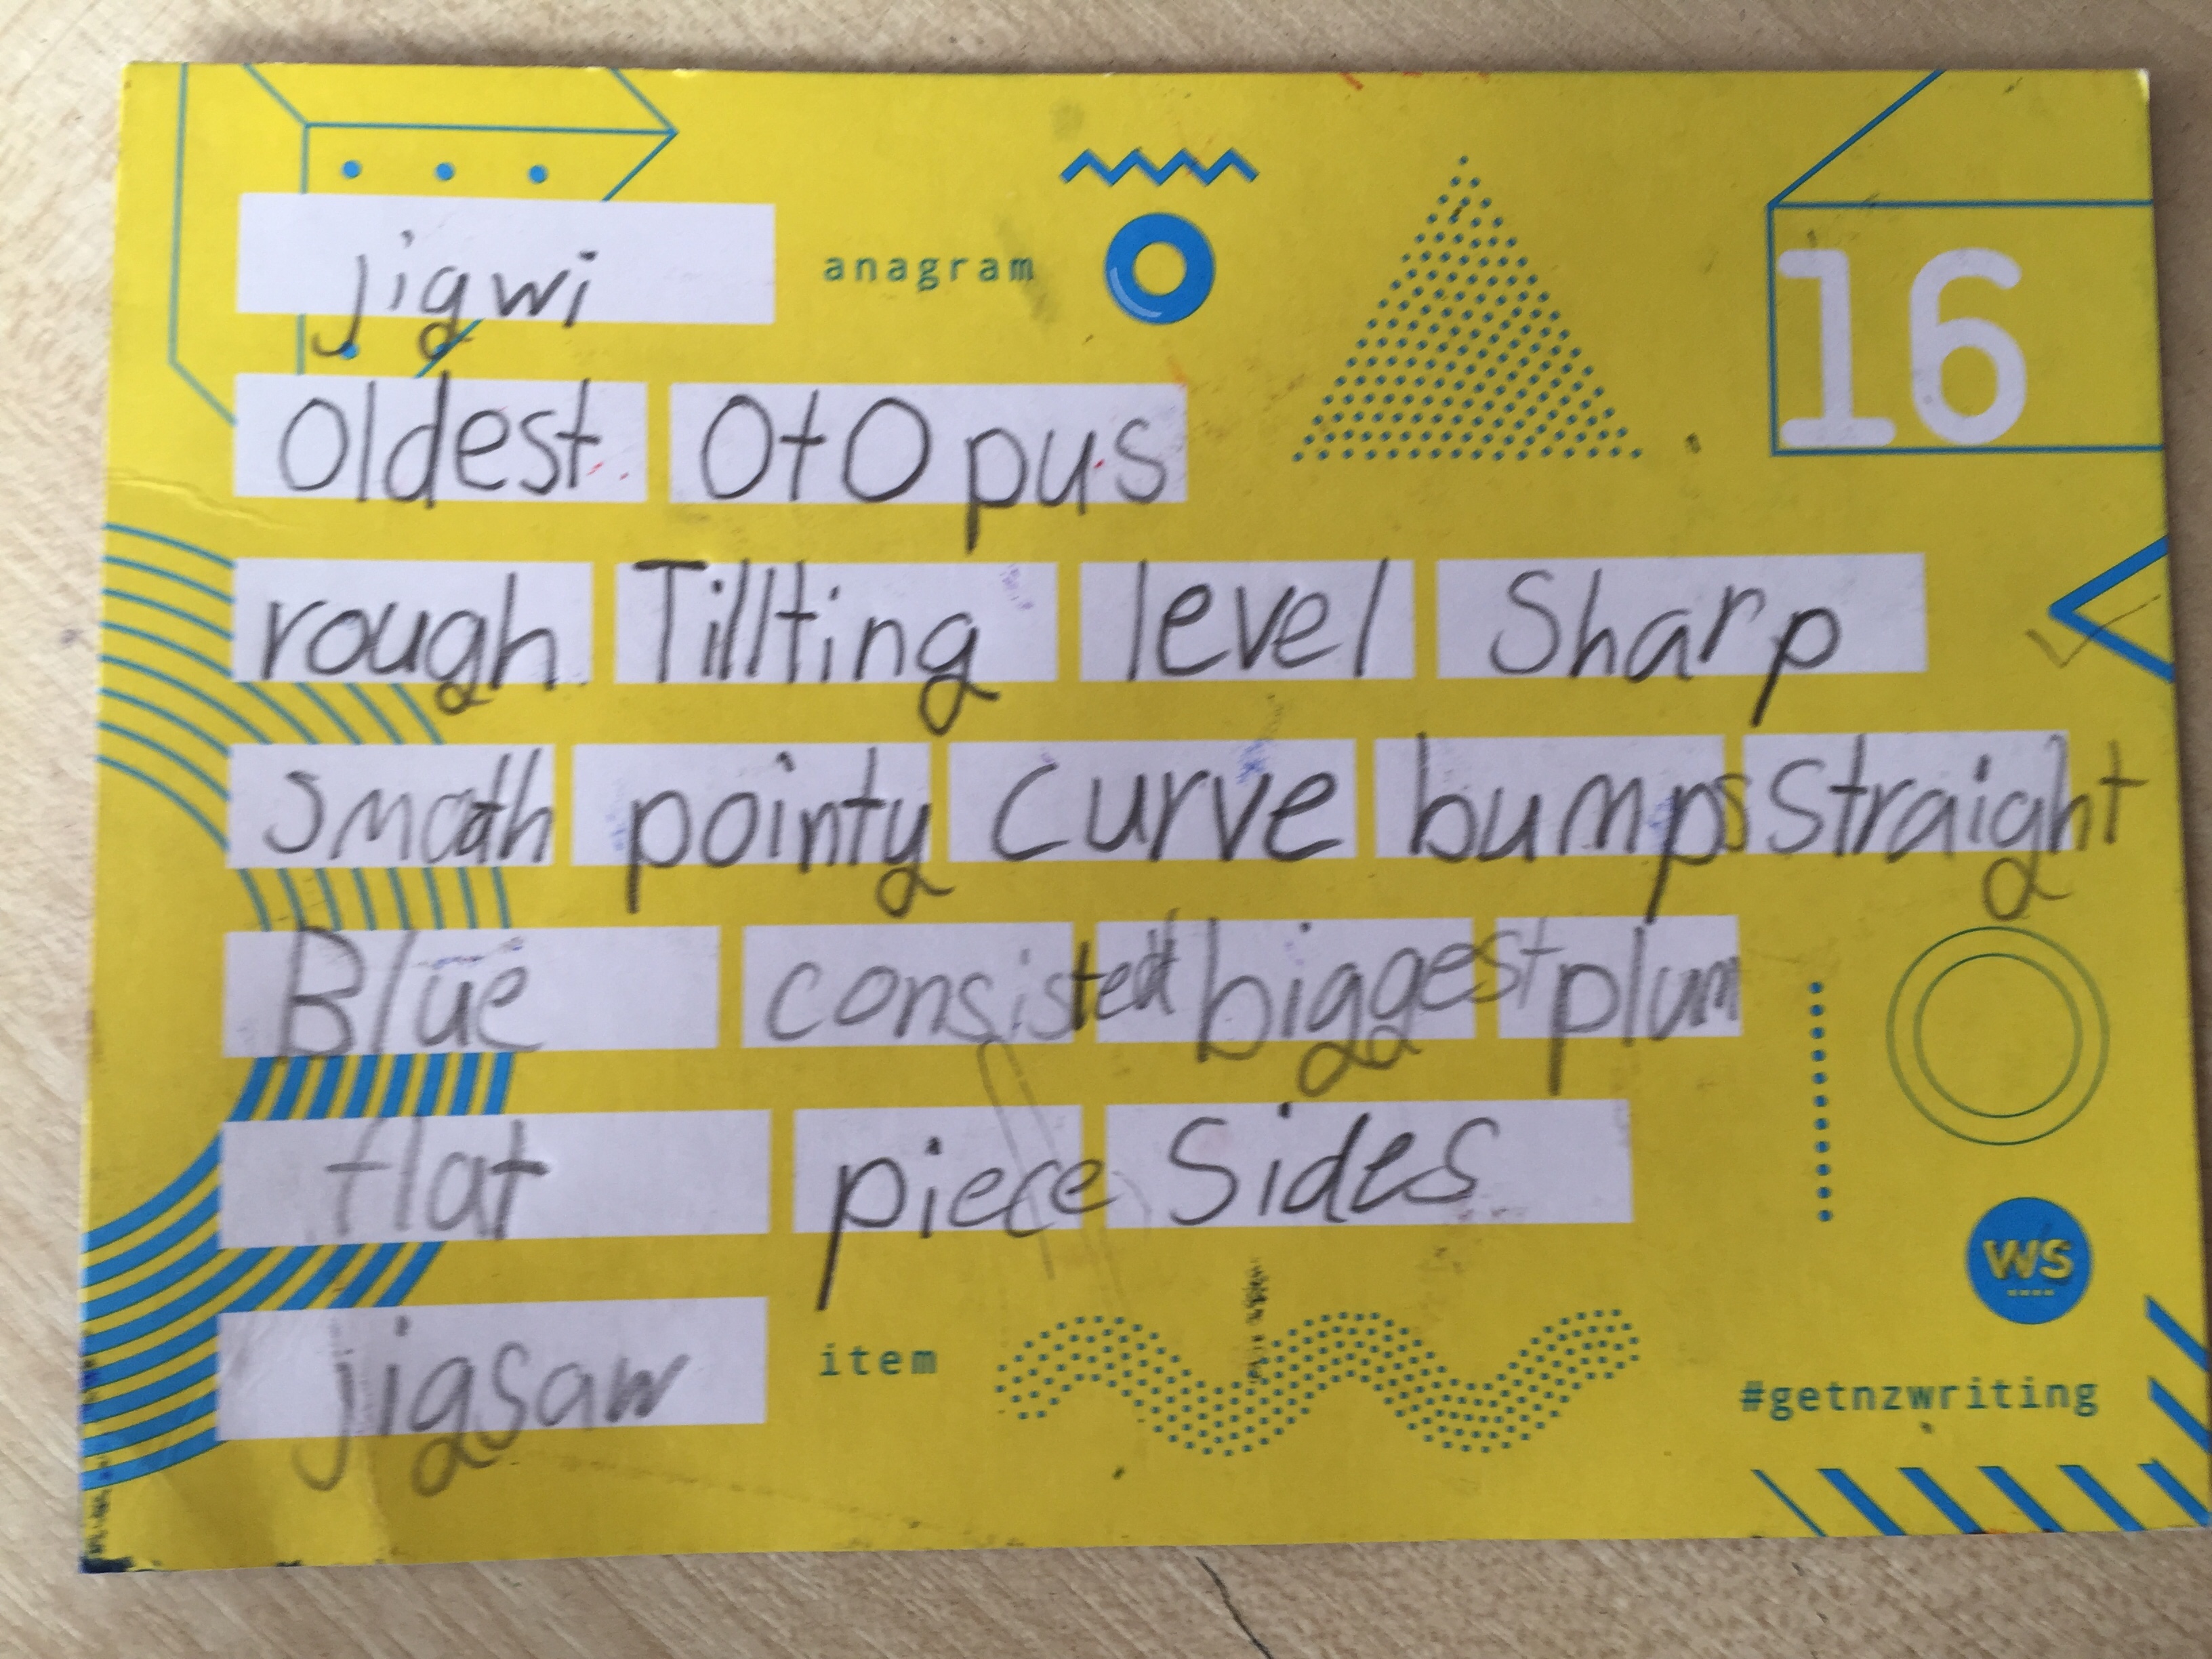 jigwi anagram
16
Oldest OtOpus
rough Tillting level Sharp
Smooth pointy Curve bumps Straight
Blue biggest plum
flat piece Sides
WS
jigsaw item
#getnzwriting